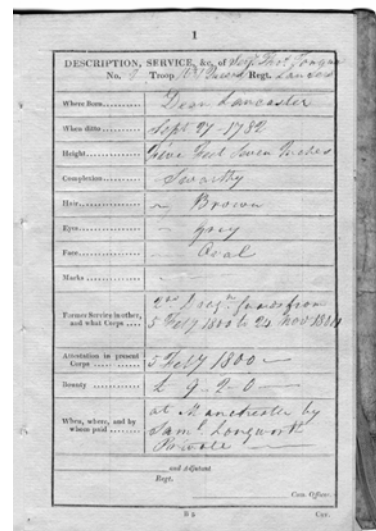 1
DESCRIPTION, SERVICE, &c. of Serjt. Thos. Tongue
No. 8 Troop Regt. Lancers
Where Born........... Dean Lancaster
When ditto........... Sept 27 - 1782
Height............... Five Feet Seven Inches
Complexion........... Swarthy
Hair................. Brown
Eyes................. grey
Face................. Oval
Marks ...............
Former Service in other,
and what Corps .... 2nd from
5 Feby 1800 to 24 Nov
Attestation in present
Corps ........... 5 Feby 1800
Bounty .............. £ 9 - 2 - 0
When, where, and by
whom paid ........ at Manchester by
Saml. Longworth
Private
and Adjutant
Regt.
Com. Officer.
B b
Cav.